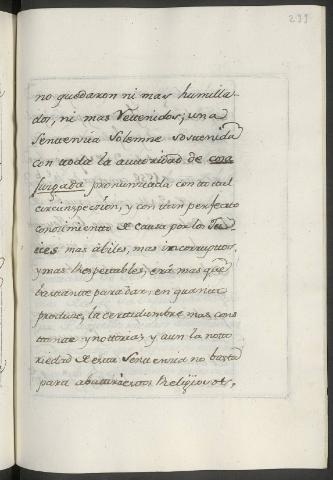 239
no quedaron ni mas humilla-
dos, ni mas Vencidos; una
Sentencia Solemne sostenida
con toda la autoridad de cosa
Juzgada pronunciada con total
circunspeccion, y con un perfecto
conocimiento de causa por los Jue
ces mas ábiles, mas incorruptos,
y mas Respetables, erá mas que
bastante para dar, en quanto
produxe, la certidumbre mas cons
tante y nottoria; y aun la notto
riedad de esta Sentencia no basta
para abatir á estos Religiosos,